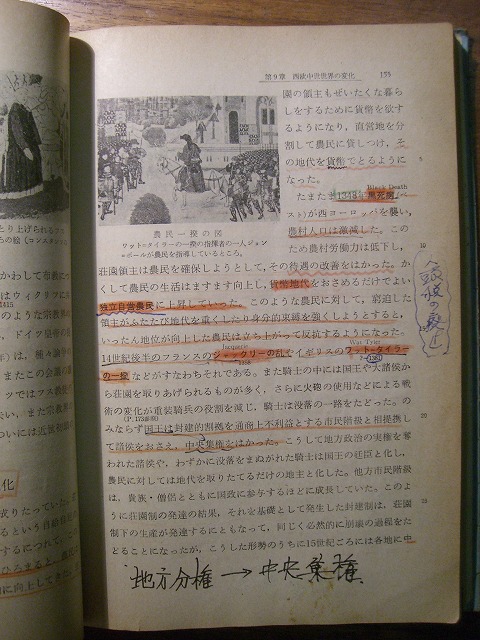 第9章　西欧中世世界の変化　155
園の領主もぜいたくな暮ら
しをするために貨幣を欲す
るようになり，直営地を分
割して農民に貸しつけ，そ
の地代を貨幣でとるように
なった。
Black Death
たまたま1348年黒死病(ペ
スト)が西ヨーロッパを襲い，
農村人口は激減した。この
ため農村労働力は低下し，
農民一揆の図
ワット=タイラーの一揆の指揮者の一人ジョン
=ボールが農民を指導しているところ。
荘園領主は農民を確保しようとして，その待遇の改善をはかった。か
くして農民の生活はますます向上し，貨幣地代をおさめるだけでよい
独立自営農民に上昇していった。このような農民に対して，窮迫した
領主がふたたび地代を重くしたり身分的束縛を強くしようとすると，
いったん地位が向上した農民は立ち上がって反抗するようになった。
Jacquerie
Wat Tyler
14世紀後半のフランスのジャックリーの乱やイギリスのワット=タイラー
1358
1381
の一揆などがすなわちそれである。また騎士の中には国王や大諸侯か
ら荘園を取りあげられるものが多く，さらに火砲の使用などによる戦
術の変化が重装騎兵の役割を減じ，騎士は没落の一路をたどった。の
(P.173参照)
みならず国王は封建的割拠を通商上不利益とする市民階級と相提携し
て諸侯をおさえ，中央集権をはかった。こうして地方政治の実権を奪
われた諸侯や，わずかに没落をまぬがれた騎士は国王の廷臣と化し，
農民に対しては地代を取りたてるだけの地主と化した。他方市民階級
は，貴族・僧侶とともに国政に参与するほどに成長していた。このよ
うに荘園制の発達の結果，それを基礎として発生した封建制は，荘園
制下の生産が発達するにともなって，同じく必然的に崩壊の過程をた
どることになったが，こうした形勢のうちに15世紀ころには各地に中
5
10
15
20
25
地方分権→中央集権
とり上げられるフ
らの絵(コンスタン
かわして布教に
はウィクリフに
1415
のような宗教界の
，ドイツ皇帝の
年)は，種々論争の
またこの会議の
ツではフス教徒
い，また宗教界の
ついには近世初頭の
化